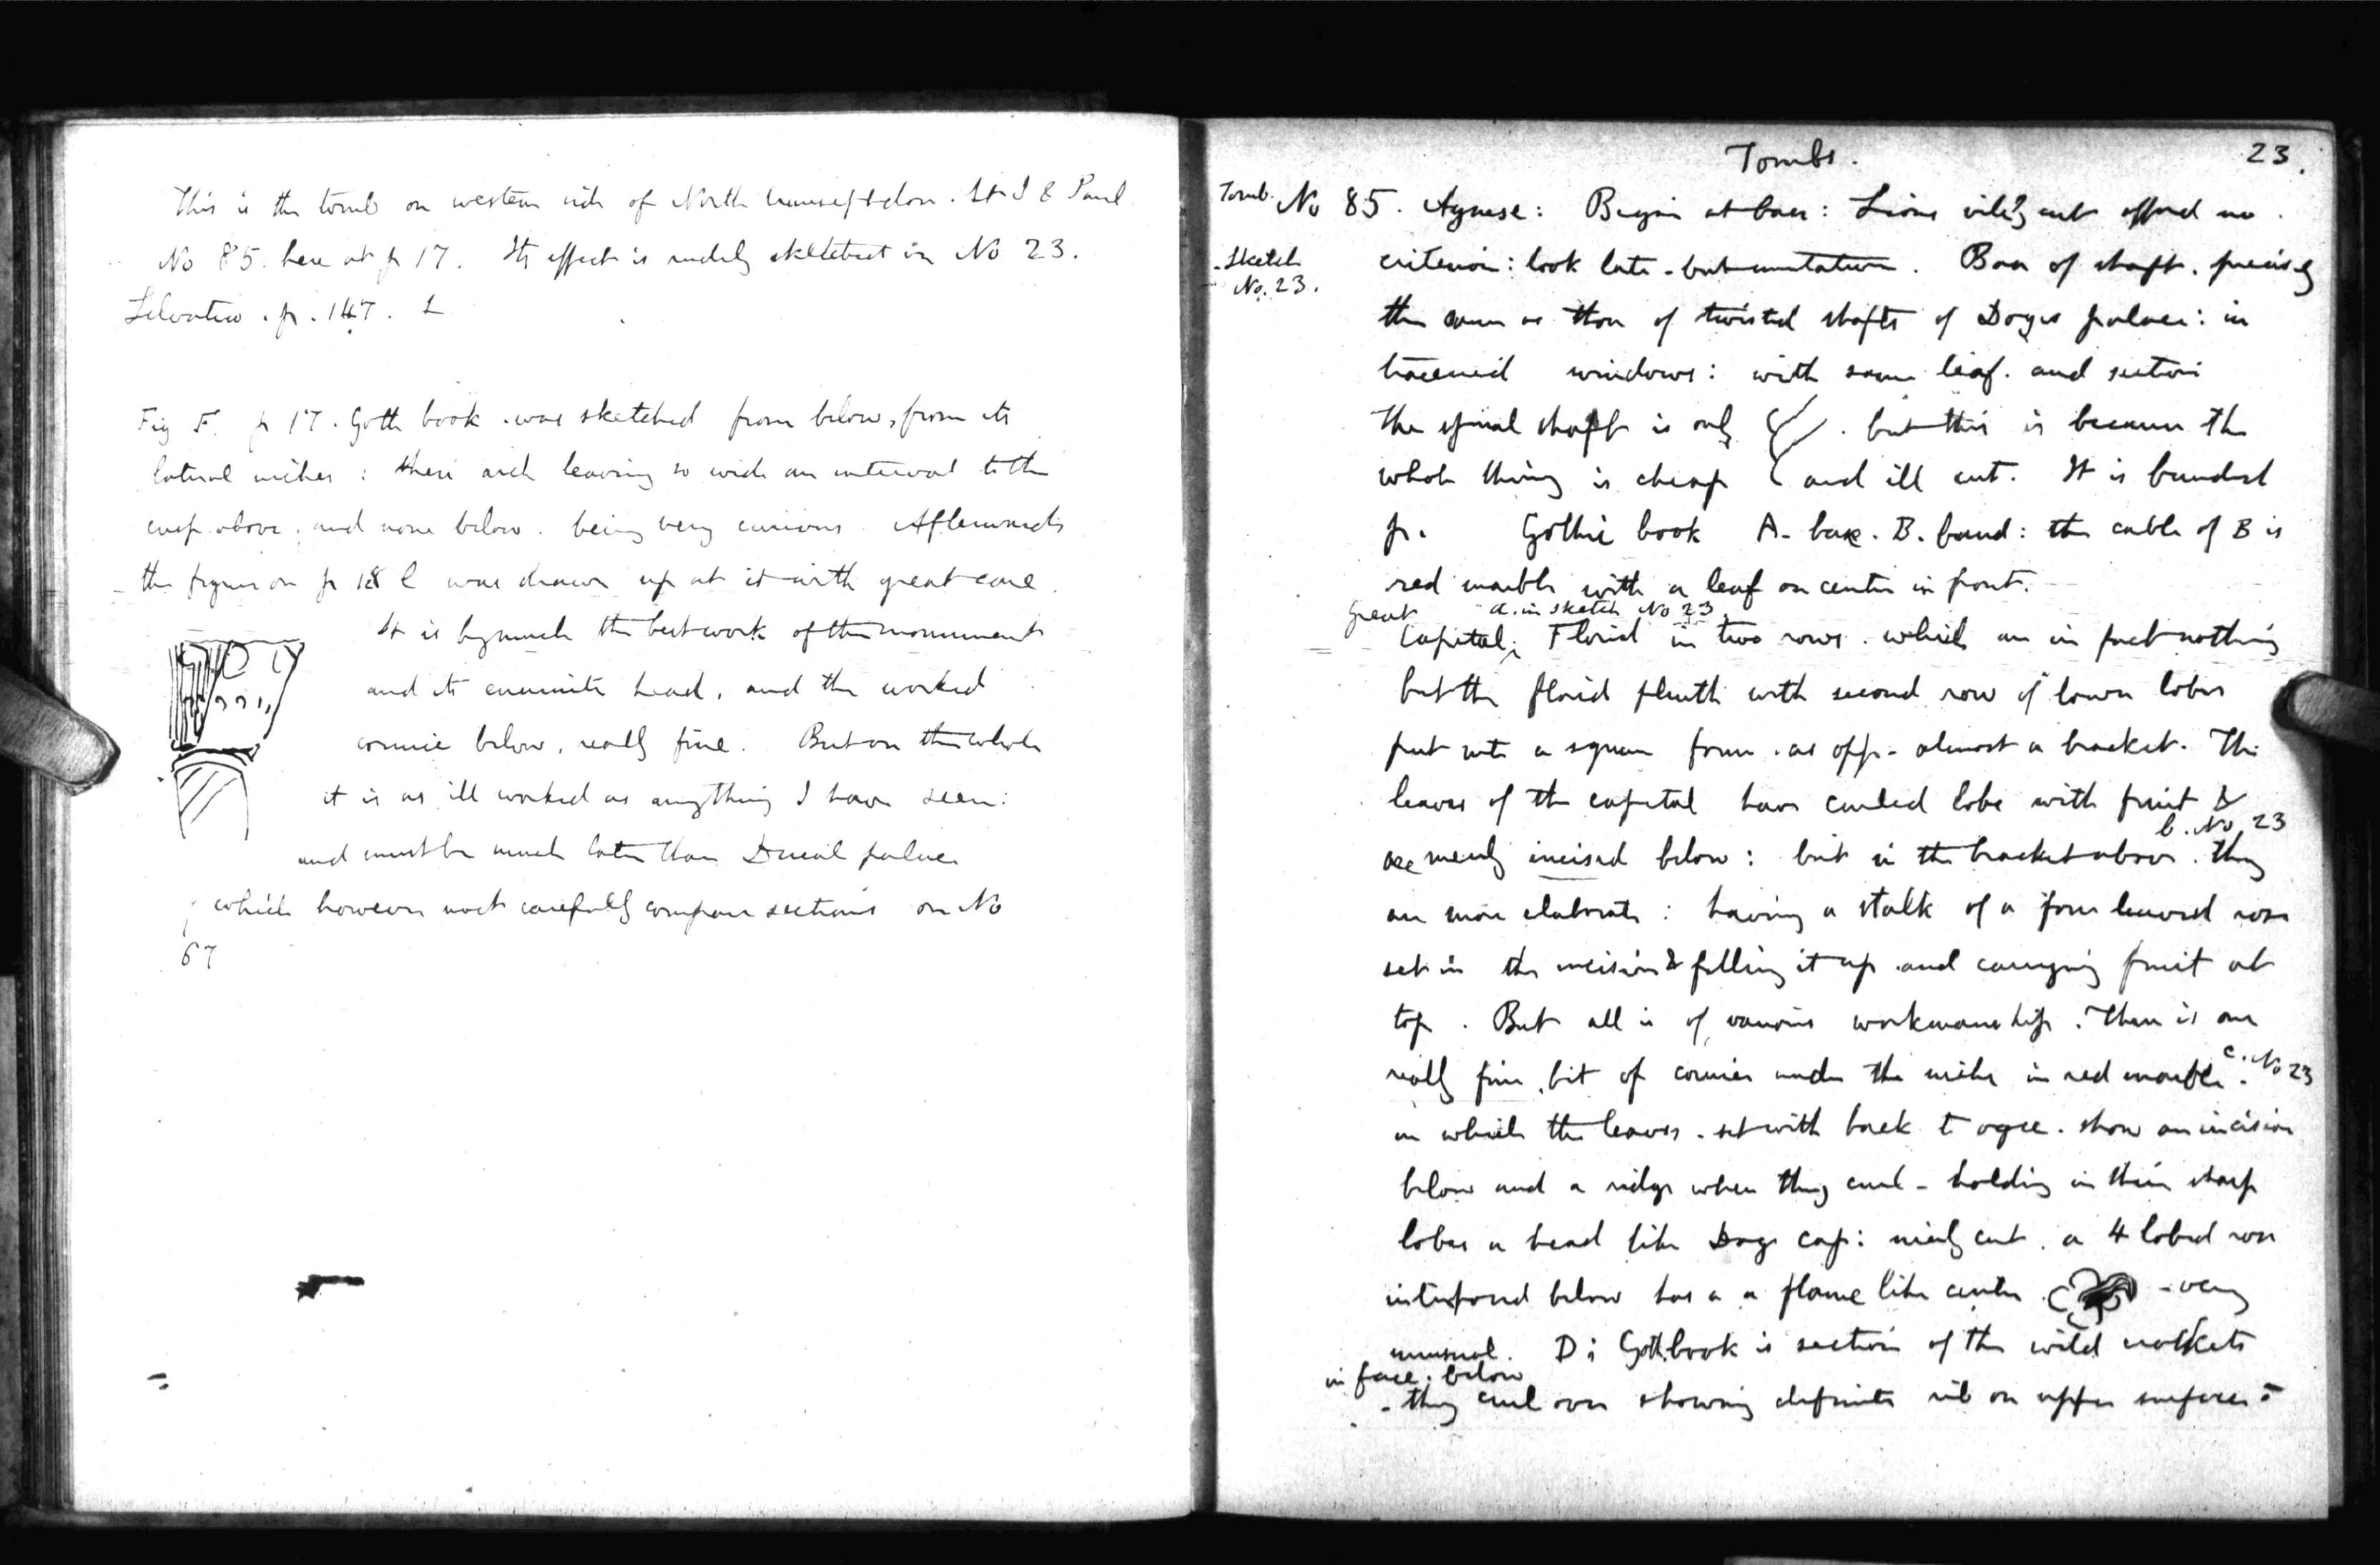 This is the tomb on western side of North transept door. St J & Paul
No 85. here at p 17. Its effect is rudely sketched in No 23.
Selvatico. p. 147. L
Fig F. p 17. Goth book. was sketched from below, from its
lateral niches: their arch leaving so wide an interval to the
cusp above, and none below. being very curious Afterwards
the figure on p 18 l was drawn up at it with great care.
It is by much the best work of the monument
and its head, and the worked
cornice below, really fine. But on the whole
it is as ill worked as anything I have seen:
and must be much later than Ducal palace
which however most carefully compare sections on No
67
Tombs. 23.
Tomb. No 85. Agnese: Begin at base: Lions vilely cut afford no
Sketch
No. 23.
criterion: look late - but imitative. Base of shaft. precisely
the same as those of twisted shafts of Doges palace: in
traceried windows: with same leaf. and section
The spiral shaft is only . but this is because the
whole thing is cheap and ill cut. It is banded
p. Gothic book A. base. B. band: the cable of B is
red marble with a leaf on center in front.
Great a. in sketch No 23
Capital; Florid in two rows. which are in fact nothing
but the florid plinth with second row of lower lobes
put into a square form. as opp. almost a bracket. The
leaves of the capital have curled lobe with fruit &
b. No 23
are merely incised below: but in the bracket above. they
are more elaborate: having a stalk of a four leaved rose
set in the incision & filling it up and carrying fruit at
top. But all is of various workmanship. There is one
really fine bit of cornice under the niche in red marble. c. No 23
in which the leaves. set with back to ogee. show an incision
below and a ridge when they curl - holding in their sharp
lobes a bead like Doge cap: nicely cut. a 4 lobed rose
interposed below has a a flame like center - very
unusual. D; Goth. book is section of the wild crockets
in face. below
- they curl over showing definite rib on upper surface: